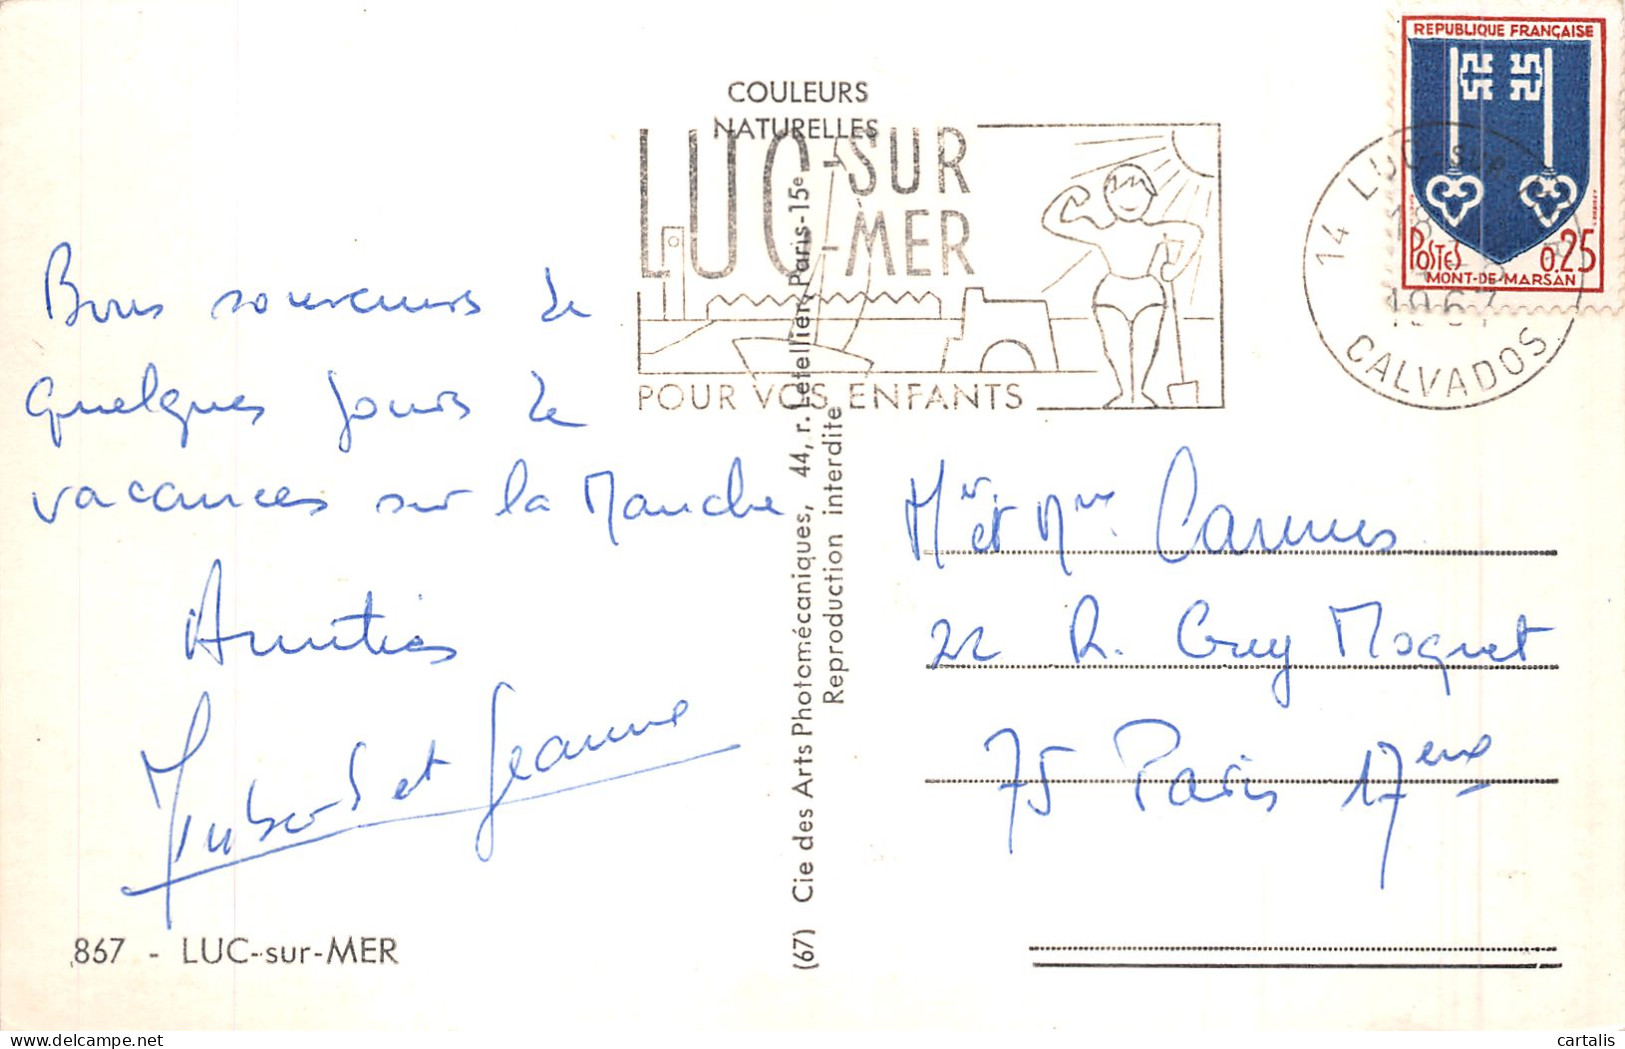 COULEURS
NATURELLES
LUC-SUR
-MER
POUR VOS ENFANTS
REPUBLIQUE FRANÇAISE
POSTES 0,25
MONT-DE-MARSAN
14 LUC-sur
18
1967
CALVADOS
Bons souvenirs de
quelques jours de
vacances sur la Manche
Amitiés
et Jeanne
867 - LUC-sur-MER
(67) Cie des Arts Photomécaniques, 44, r. Letellier, Paris-15e
Reproduction interdite
Mr et Mme Carmes
22 R. Guy Moquet
75 Paris 17eme
cartalis